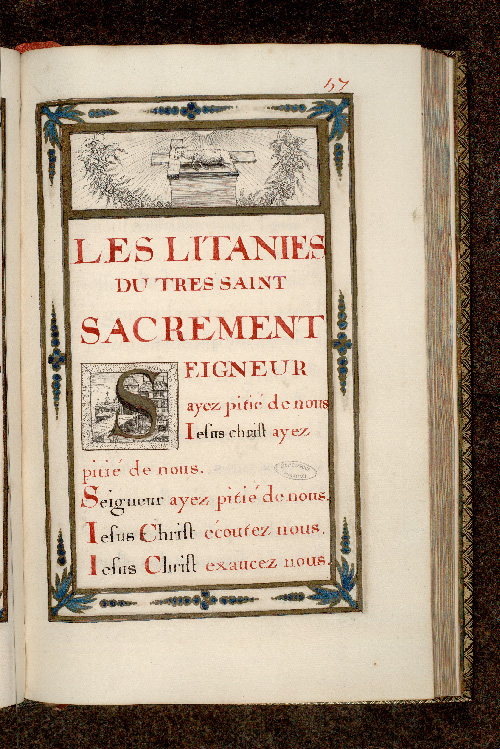 57
LES LITANIES
DU TRES SAINT
SACREMENT
SEIGNEUR
ayez pitié de nous
Iesus christ ayez
pitié de nous.
Seigneur ayez pitié de nous.
Iesus Christ écoutez nous.
Iesus Christ exaucez nous.